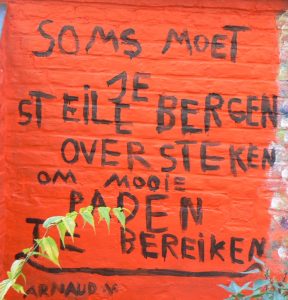 SOMS MOET
JE
STEILE BERGEN
OVERSTEKEN
OM MOOIE
PADEN
TE BEREIKEN
ARNAUD V.